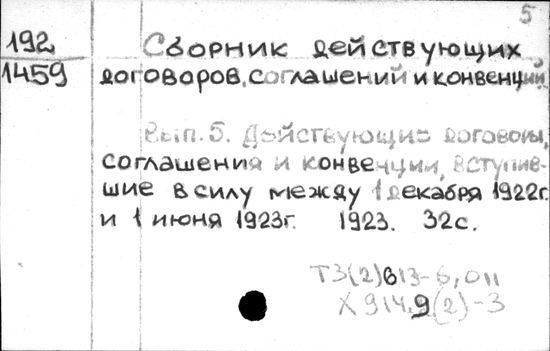 5
192
1459
Сборник действующих
договоров, соглашений и конвенций
Вып. 5. Действующие договоры,
соглашения и конвенции, вступив-
шие в силу между 1 декабря 1922г.
и 1 июня 1923г. 1923. 32с.
Т3(2)613-6,011
Х914.9(2)-3